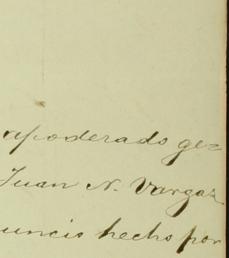 apoderado ge=
Juan N. Vargaz
uncio hecho por